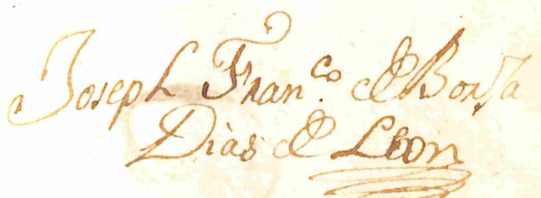 Joseph Fran.co de Borja
Dias de Leon